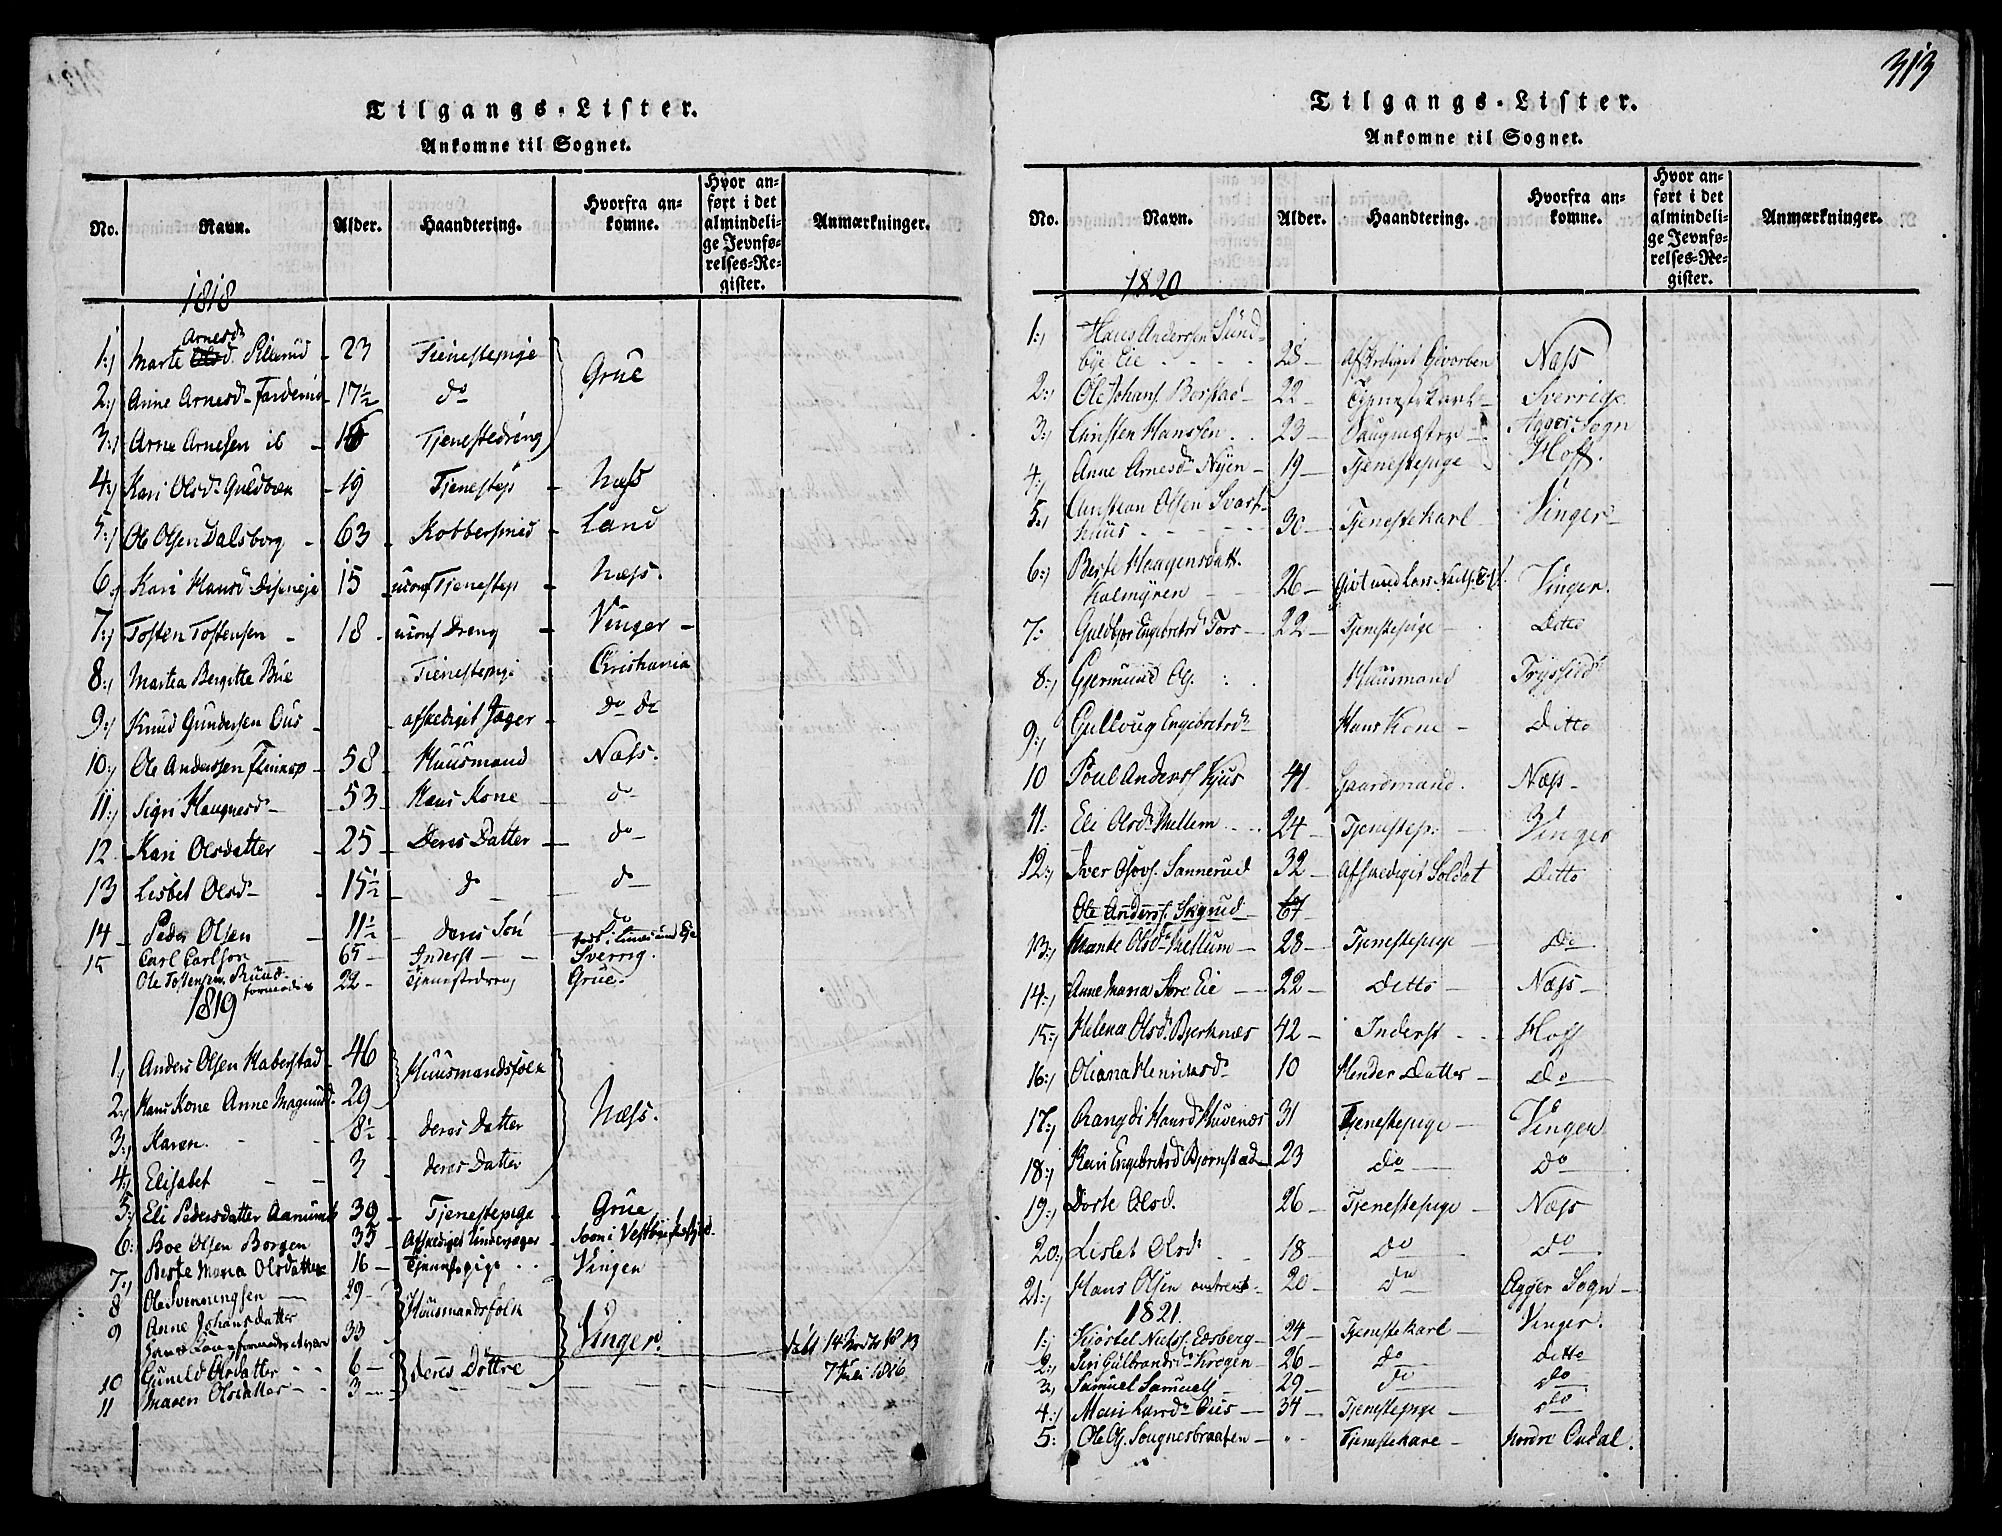 Tilgangs-Lister.
Ankomne til Sognet.
No. Navn. Alder. Haandtering. Hvorfra an-
komne. Hvor an-
ført i det
almindeli-
ge Jevnfø-
relses-Re-
gister. Anmærkninger.
1818
Arnesd
1:) Marte d. Pillerud 23 Tienestepige Grue
2:) Anne Arnesd 17½ do
3:) Arne Arnesen ib 16 Tjenestedreng
4:) Kari Olsd. Guldbræk 19 Tjenestep Næss
5:) Ole Olsen Dalsborg 63 Kobbersmed Land
6:) Kari Hansd Diseneje 15 Tjenestep Næss.
7:) Tosten Tostensen 18 Dreng Vinger
8:) Martea Bergitte Bue Tienestepige Christiania
9:) Knud Gundersen Ous afskediget Jæger do do
10:) Ole Anderssen 58 Huusmand Næss.
11:) Sigri Haagnesd 53 Hans Kone do
12 Kari Olsdatter 25 Deres Datter do
13 Lisbet Olsd 15½ d do
14 Peder Olsen 11½ deres Søn do
15 Carl Carlson 65 Inderst Sverrig.
Ole Tostensen Ruud 22 Tjenestedreng Grue.
1819
1,) Anders Olsen Haberstad 46 Huusmandsfolk Næss.
2:) Hans Kone Anne Magnusd. 29
3:) Karen 8½ deres Datter
4:) Elisabet 3 deres Datter
5:) Eli Pedersdatter Aamund 39 Tjenestepige Grue
6: Boe Olsen Borgen 35 Afskediget Underjæger
7:) Berte Maria Olsdatter 16 Tjenestepige Vinger
8 Ole Svenningsen 29 Huusmandsfolk Vinger
9 Anne Johansdatter 33
10 Gunild Olsdatter 6 Deres Døttre
11 Maren Olsdatter 3
313
Tilgangs-Lister.
Ankomne til Sognet.
No. Navn. Alder. Haandtering. Hvorfra an-
komne. Hvor an-
ført i det
almindeli-
ge Jevnfø-
relses-Re-
gister. Anmærkninger.
1820
1:) Hans Anderssen Sund-
bye Eie 28 Næss
2:) Ole Johans. Berstad 22 Tjenestekarl Sverrige
3:) Christen Hanssen 23 Saugmester Agger Sogn
4:) Anne Arnesd Nyen 19 Tjenestepige Hoff.
5:) Christian Olsen Svart-
huus 30 Tjenestekarl Vinger
6:) Berte Haagensdatt.
Kalmyren 26 Gift med Lars Niels. Vinger.
7: Guldbjør Engebretsd Tors 22 Tjenestepige Ditto
8:) Gjermund Ols. Huusmand Trysild
9:) Gullaug Engebretsd Hans Kone Ditto
10 Poul Anders. Kjus 41 Gaardmand. Næss
11: Eli Olsd. Mellem 24 Tjenestep: Vinger
12:) Iver Olsen Sannerud 32 Afskediget Soldat Ditto
Ole Anderss. Skyrud 67
13:) Marte Olsd. Mellum 28 Tjenestepige Do
14:) Anne Maria Søre Eie 22 Ditto Næss
15:) Helena Olsd. Bjerknæs 42 Inderst Hoff
16:) Oliana Henriksd 10 Hendes Datter Do
17:) Rangdi Hansd. 31 Tjenestepige Vinger
18:) Kari Engebretsd Bjørnstad 23 do Do
19:) Dorte Olsd. 26 Tjenestepige Næss
20:) Lisbet Olsd 18 Do do
21:) Hans Olsen 20 do Agger Sogn
1821.
1:) Kiørtel Nielss. Edsberg 24 Tjenestekarl Vinger.
2:) Siri Gulbrandsd Krogen 26 do Ditto
3:) Samuel Samuels. 29 do do
4:) Mari Larsd Ous 34 Tjenestepige do
5: Ole Ols. Sougnesbraaten " Tjenestekarl Nordre Oudal.